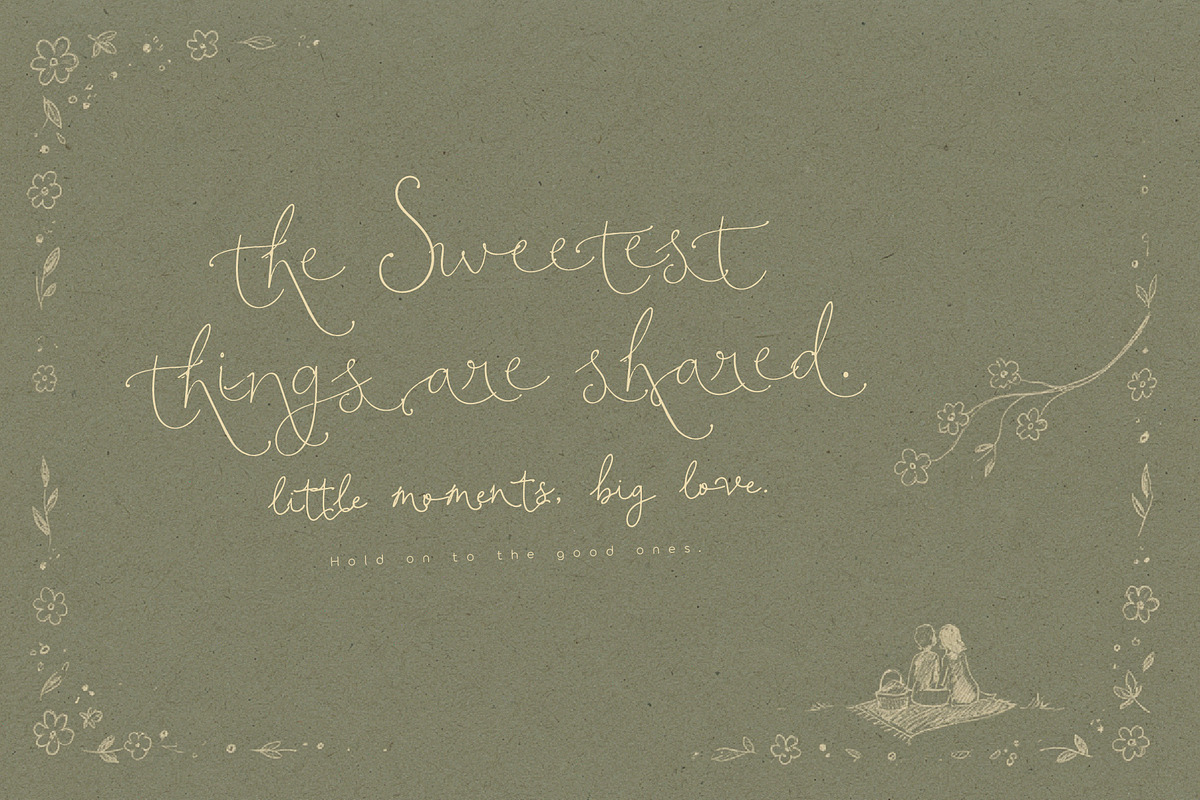 the Sweetest
things are shared.
little moments, big love.
Hold on to the good ones.